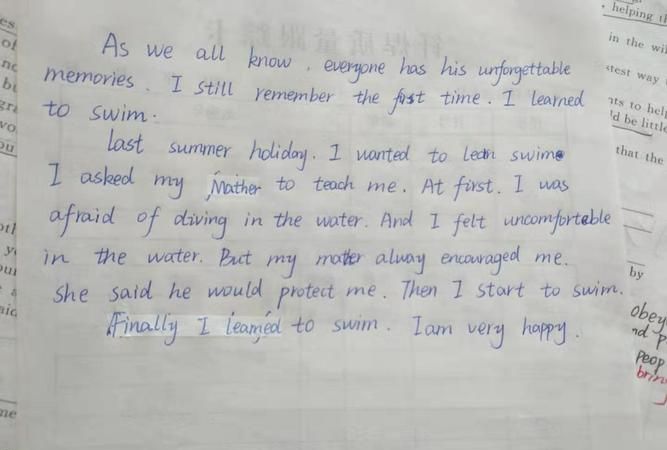 As we all know, everyone has his unforgettable
memories. I still remember the first time. I learned
to swim.
Last summer holiday. I wanted to lean swim
I asked my Mather to teach me. At first. I was
afraid of diving in the water. And I felt uncomfortable
in the water. But my mather alway encouraged me.
She said he would protect me. Then I start to swim.
Finally I learned to swim. I am very happy.
helping th
in the wil
stest way
nts to help
ld be little
that the
by
obey
nd p
peop
brin